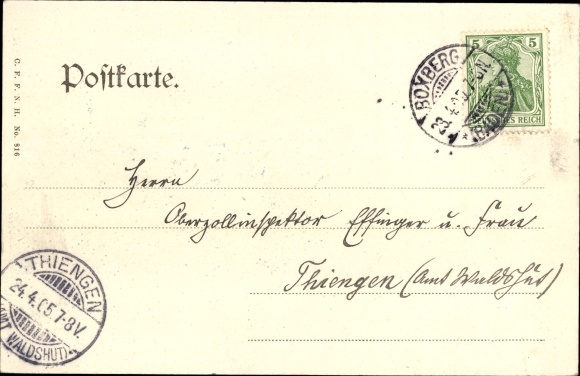 Postkarte.
C. F. F. N. H. No. 816
5 5
DEUTSCHES REICH
BOXBERG
23.4.05.7-8N.
*(BADEN)*
Herrn
Oberzollinspektor Effinger u. Frau
Thiengen (Amt Waldshut)
THIENGEN
24.4.05 7-8V.
(AMT WALDSHUT)